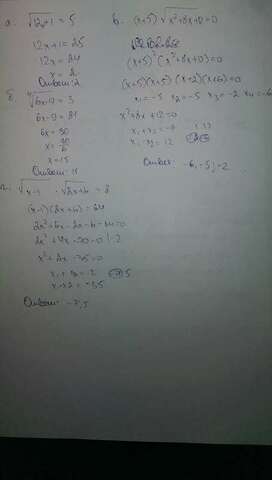 а. √12x+1 = 5
12x+1 = 25
12x = 24
x = 2
Ответ: 2
б.
= 3
= 81
6x = 90
x = 90/6
x = 15
Ответ: 15
в. (x+5) √x²+8x+12 = 0
(x+5)² (x²+8x+12) = 0
(x+5)(x+5)(x+2)(x+6) = 0
x₁ = -5 x₂ = -5 x₃ = -2 x₄ = -6
x²+8x+12 = 0
x₁+x₂ = -8
x₁·x₂ = 12
Ответ: -6, -5; -2
г. √x-1 · √2x+6 = 8
(x-1)(2x+6) = 64
2x²+6x-2x-6-64 = 0
2x²+4x-70 = 0 |:2
x²+2x-35 = 0
x₁+x₂ = -2
x₁·x₂ = -35
Ответ: -7, 5